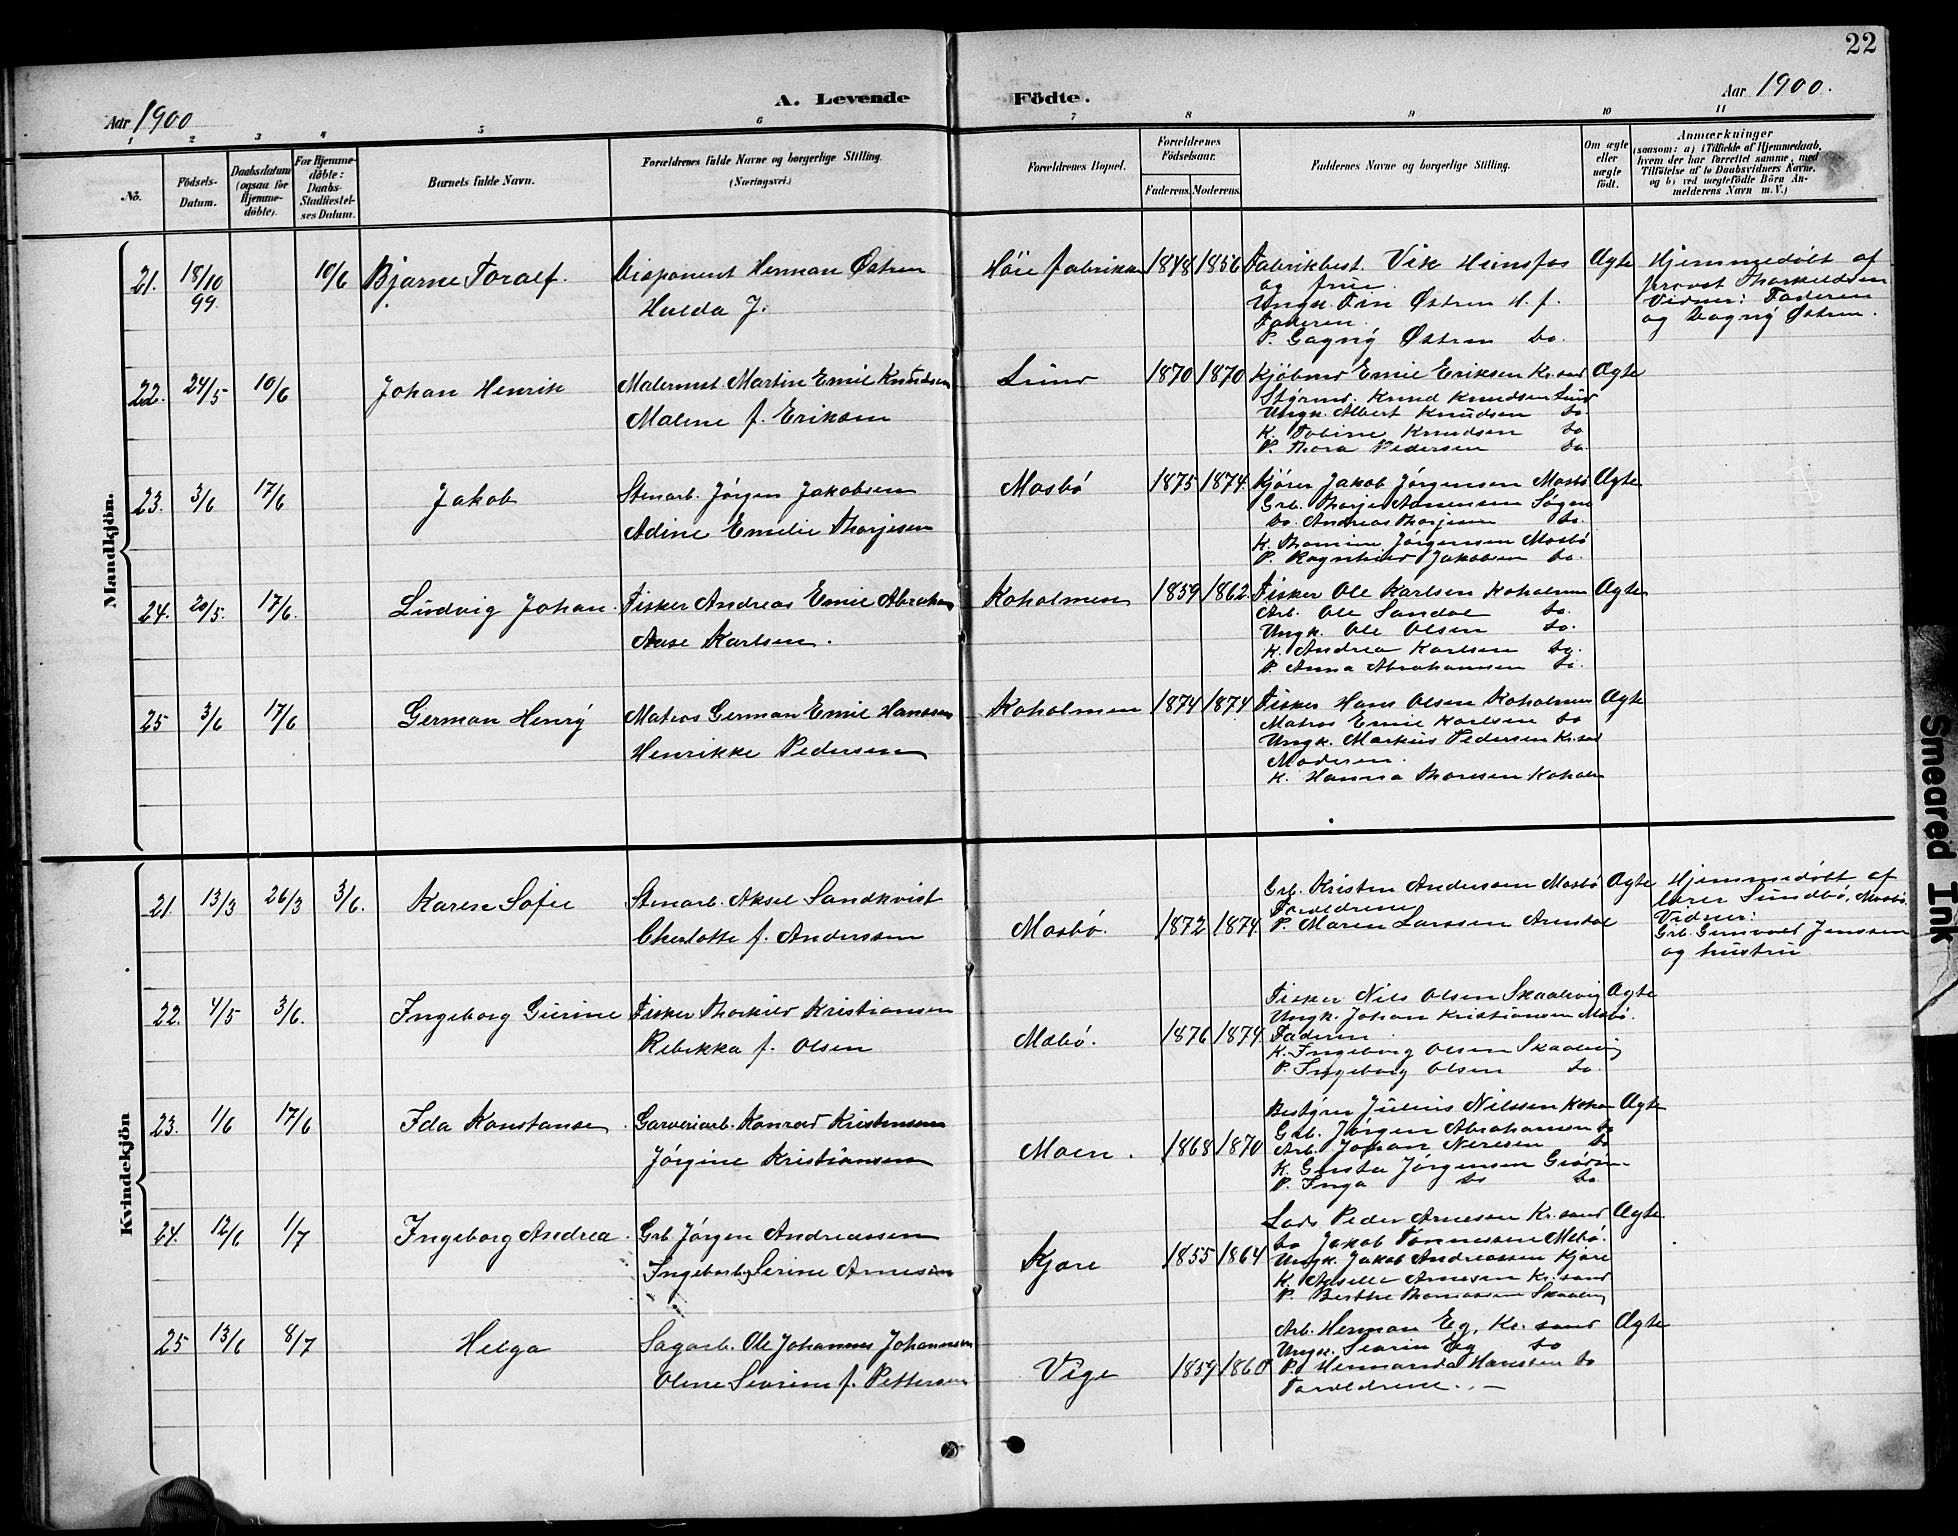 22
Aar 1900
A. Levende Födte.
Aar 1900.
1 2 3 4 5 6 7 8 9 10 11
No.
Födsels-Datum.
Daabsdatum (ogsaa for Hjemme-döbte).
For Hjemme-döbte: Daabs-Stadfæstel-ses Datum.
Barnets fulde Navn.
Forældrenes fulde Navne og borgerlige Stilling.
(Næringsvei.)
Forældrenes Bopæl.
Forældrenes Födselsaar.
Faderens. Moderens.
Faddernes Navne og borgerlige Stilling.
Om ægte eller uægte födt.
Anmærkninger
(saasom: a) i Tilfælde af Hjemmedaab, hvem der har forrettet samme, med Tilföielse af to Daabsvidners Navne, og b) ved uægtefödte Börn An-melderens Navn m. V.)
Mandkjön.
21. 18/10 99. 10/6 Bjarne Toralf. Disponent Herman Østren
Hulda J.
Höie fabrikker 1848 1856 Fabrikbest. Vik Hunsfos Ægte
og frue.
Ungk. Finn Østren H. f.
Faderen.
P. Dagny Østren do.
Hjemmedöbt af
provst Thorkildsen
Vidner: Faderen
og Dagny Østren.
22. 24/5 10/6 Johan Henrik Malermst Martin Emil Knudsen
Malene f. Eriksen
Lund 1870 1870 Kjöbmd Emil Eriksen Kr.sand Ægte
Styrmd. Knud Knudsen Lund
Ungk. Albert Knudsen do.
K. Tobine Knudsen do.
P. Thora Pedersen do.
23. 3/6 17/6 Jakob Stenarb. Jörgen Jakobsen
Adine Emilie Thorjesen
Mosbö 1875 1874. Kjörer Jakob Jörgensen Mosbö Ægte
Grb. Thorje Søgne
do. Andreas Thorjesen do.
K. Jörgensen Mosbö
P. Ragnhild Jakobsen do.
24. 20/5. 17/6. Ludvig Johan. Fisker Andreas Emil Abraham
Aase Karlsen.
Koholmen 1859 1862. Fisker Ole Karlsen Koholmen Ægte
Arb. Ole Sandal do.
Ungk. Ole Olsen do.
K. Andrea Karlsen do.
P. Anna Abrahamsen do.
25 3/6 17/6 German Henry Matros German Emil Hanssen
Henrikke Pedersen
Koholmen 1874 1874 Fisker Hans Olsen Koholmen Ægte
Matros Emil Karlsen do
Ungk. Markus Pedersen Kr.sand
Moderen.
K. Hanna Thoresen Koholm
Kvindekjön
21. 13/3 26/3 3/6. Karen Sofie Stenarb. Aksel Sandkvist
Charlotte f. Andersen
Mosbö. 1872 1874. Grb. Kristen Andersen Mosbö Ægte
Forældrene
P. Maren Larssen Arendal
Hjemmedöbt af
lærer Sundbö, Mosbö.
Vidner:
Grb. Gunvald Jenssen
og hustru.
22. 4/5 3/6. Ingeborg Gurine Fisker Thorkild Kristiansen
Rebekka f. Olsen
Mæbö. 1876 1874 Fisker Nils Olsen Skaalevig Ægte
Ungk. Johan Kristiansen Mæbö.
Faderen
K. Ingeborg Olsen Skaalevig
P. Ingeborg Olsen do.
23. 1/6 17/6 Ida Konstanse Garveriarb. Konrad Kristensen
Jörgine Kristiansen
Moen. 1868 1870 Bestyrer Julius Nilssen Ægte
Grb. Jörgen Abrahamsen do
Arb. Johan do
K. Gusta Jörgensen
P. Inga do do.
24. 12/6 1/7 Ingeborg Andrea. Grb Jörgen Andreassen
Ingeborg Serine Arnesen
Kjære 1855 1864 Lods Peder Arnesen Kr.sand Ægte.
do Jakob Tönnessen Mæbö.
Ungk. Jakob Andreassen Kjære
K. Arnesen Kr.sand
P. Berthe Thomassen Skaalevig
25 13/6 8/7 Helga Sagarb. Ole Johannes Johannessen
Oline Severine f. Pettersen
Vige 1859 1860 Arb. Herman Eg, Kr.sand Ægte
Ungk. Severin Eg do
P. Hermanda Hansten do
Forældrene.
Smeared Ink